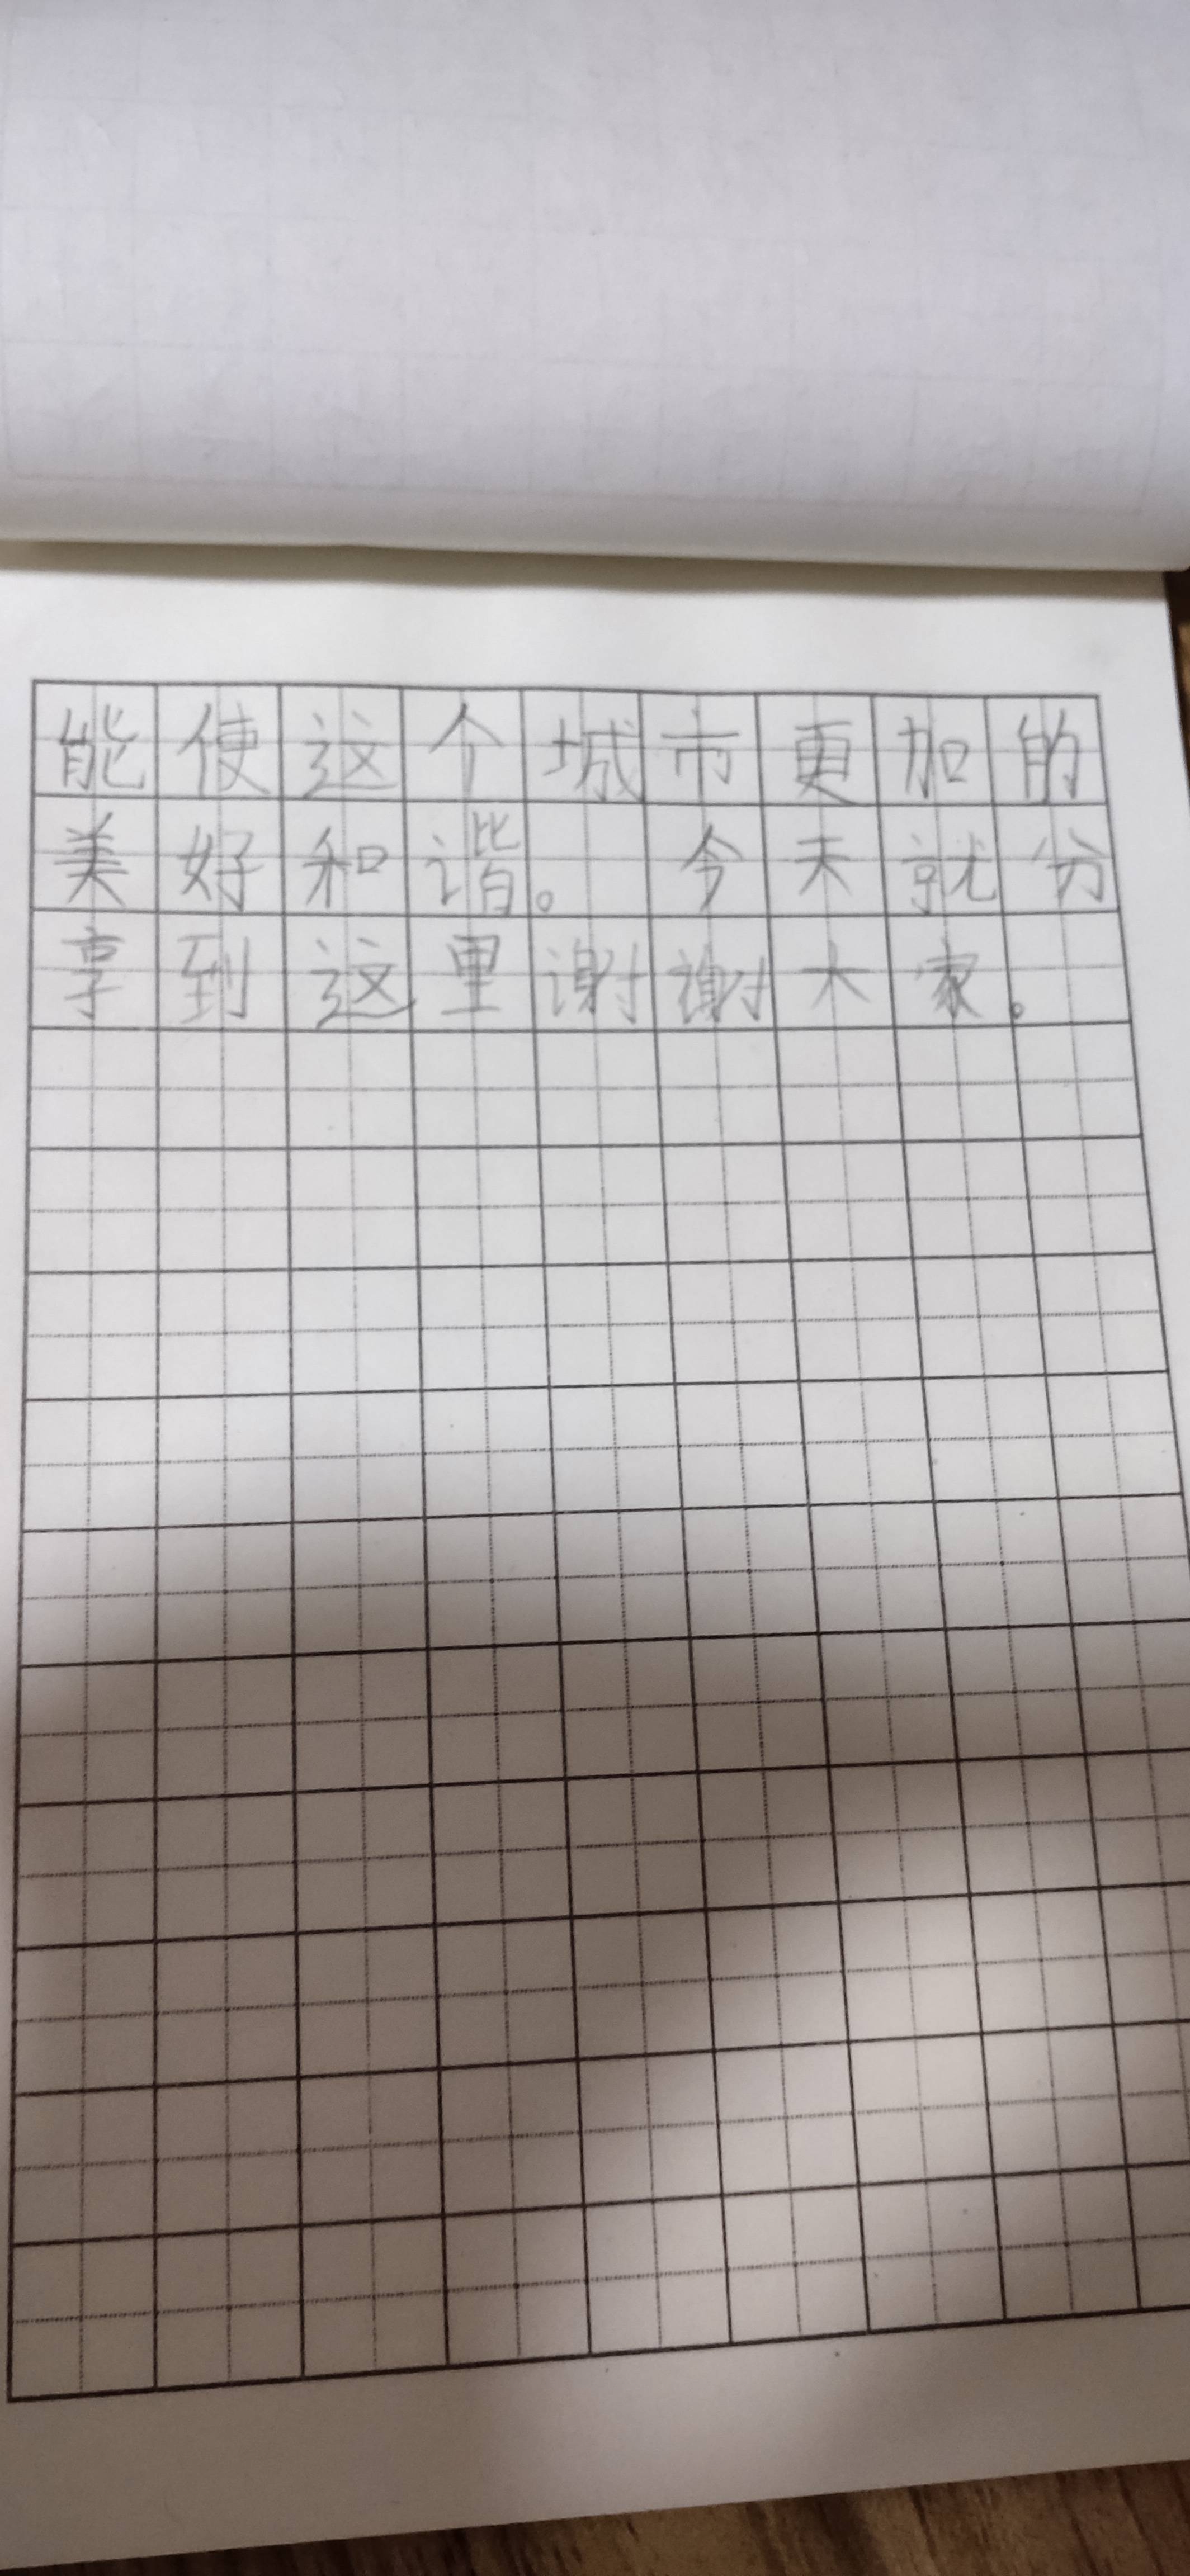 能使这个城市更加的
美好和谐。今天就分
享到这里谢谢大家。